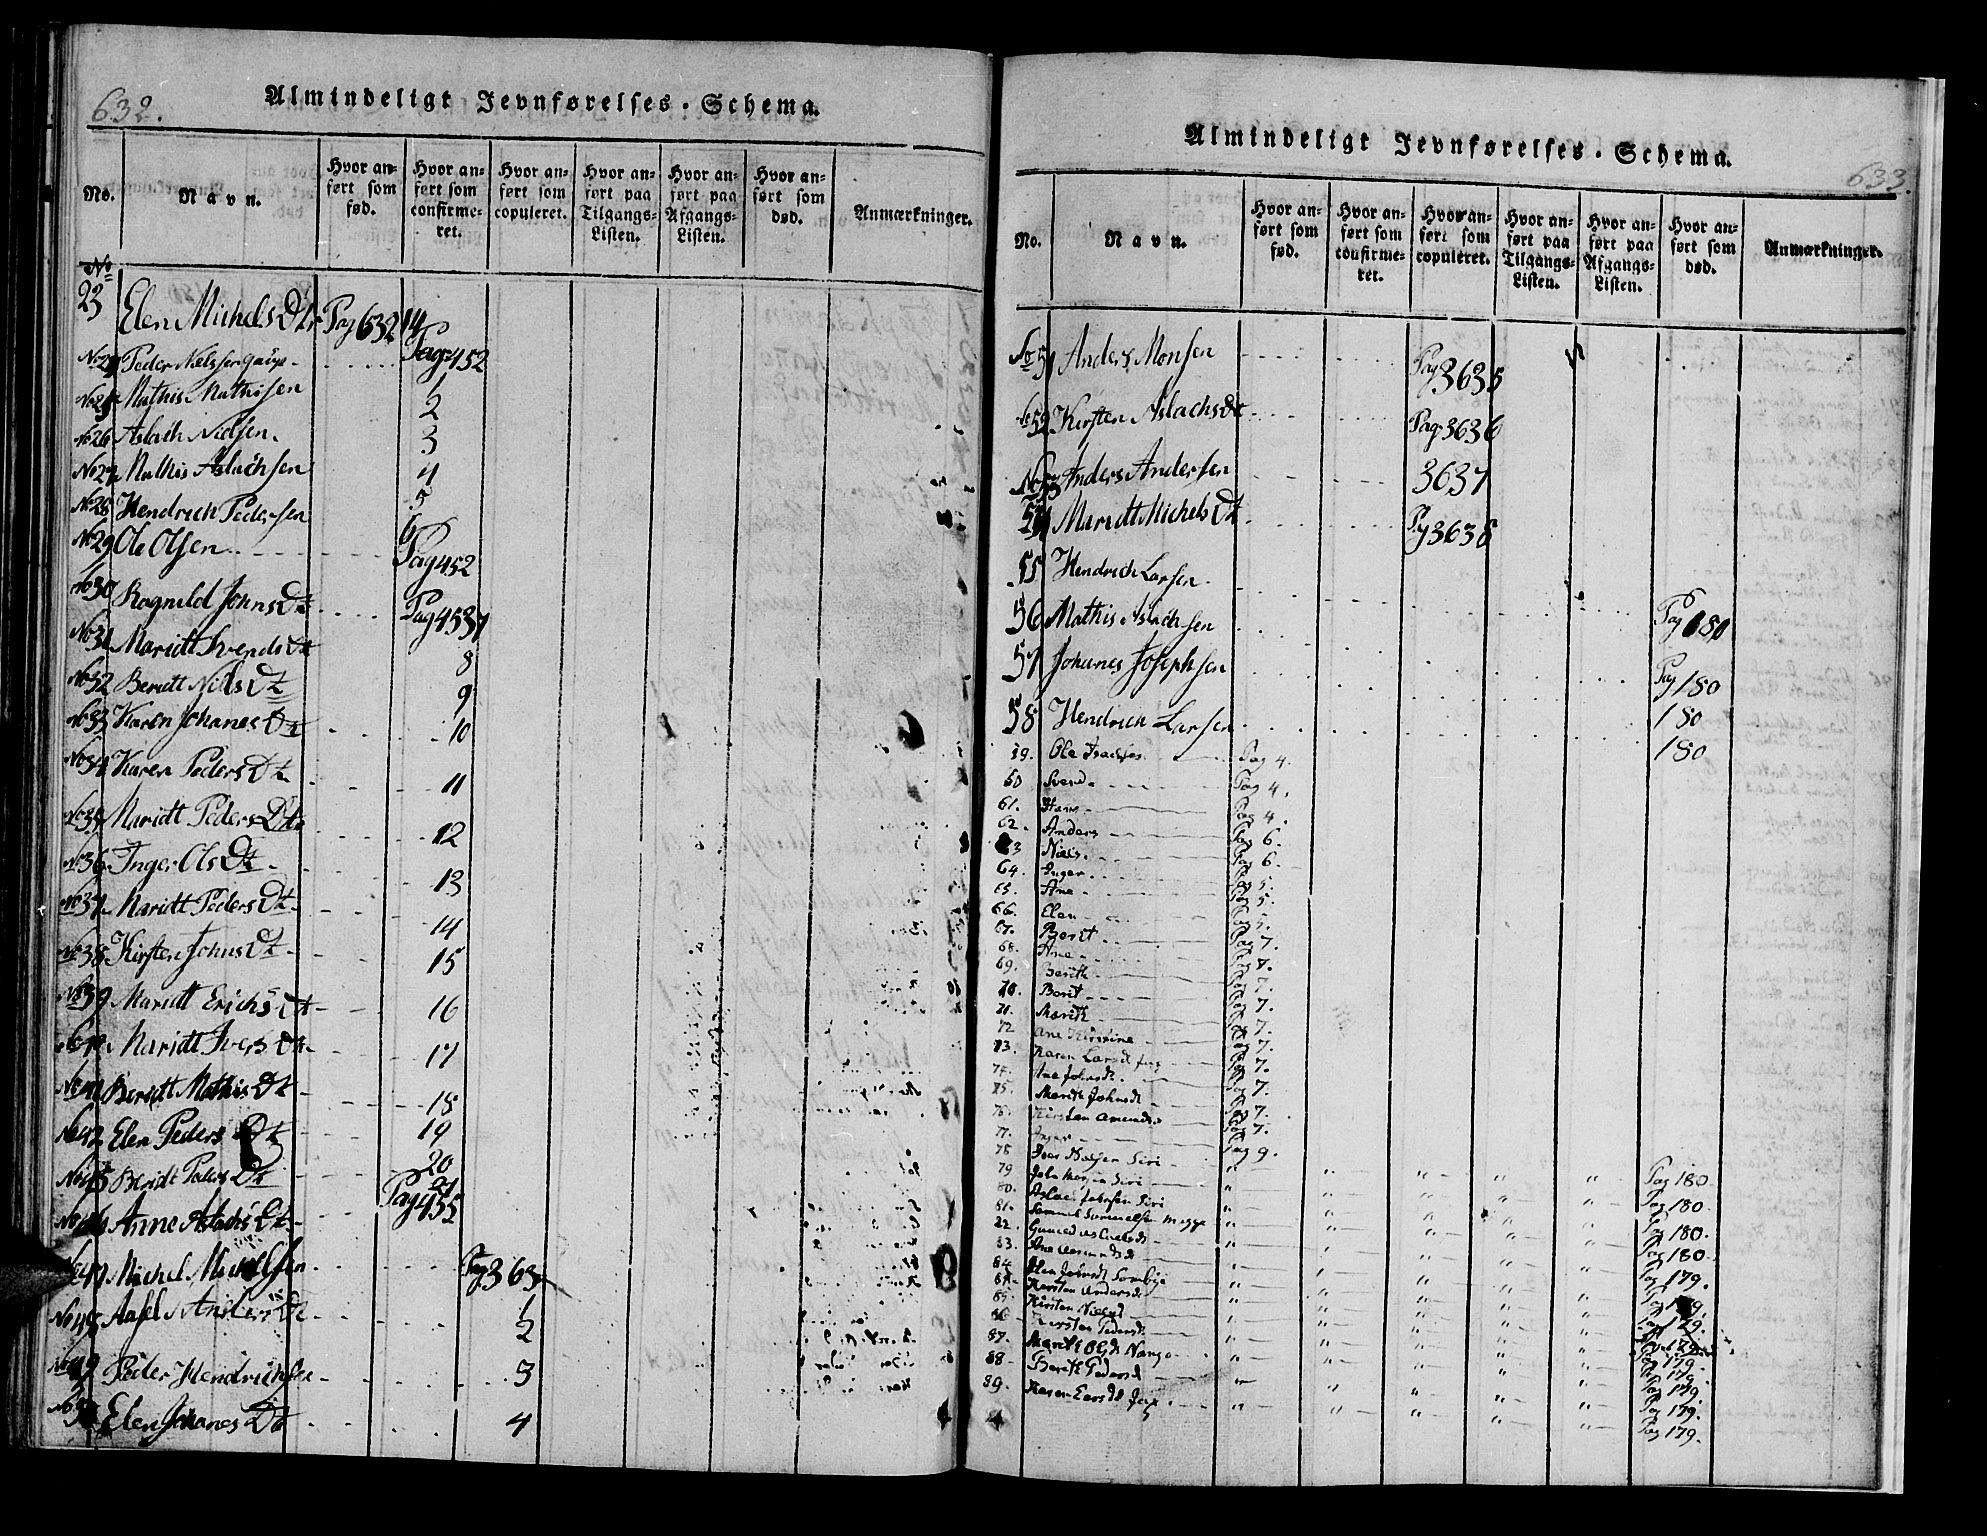 632.
Almindeligt Jevnførelses-Schema.
No.
Navn.
Hvor anført som fød.
Hvor anført som confirmeret.
Hvor anført som copuleret.
Hvor anført paa Tilgangs-Listen.
Hvor anført paa Afgangs-Listen.
Hvor anført som død.
Anmærkninger.
No 23 Elen Michels Dtr Pag 632 14
Peder Nielssen Pag 452
Mathis Mathisen 1
No 26 Aslach Nielsen. 2
No 27 Mathis Aslachsen 3
No 28 Hendrich Pedersen 4
No 29 Ole Olsen Pag 452
No 30 Ragnild Johns Dt Pag 453 7
No 31 Maridt Svends Dt 8
No 32 Beridt Nils Dt 9
No 33 Karen Johanes Dt 10
No 34 Karen Peders Dt 11
No 35 Maridt Peders Dt 12
No 36 Inger Ols Dt 13
No 37 Maridt Peders Dt 14
No 38 Kirsten Johns Dt 15
No 39 Maridt Erichs Dt 16
Maridt Ivers Dt 17
Beridt Mathis Dt 18
No 42 Elen Peders Dt 19
Beridt Peders Dt 20
Anne Aslachs Dt Pag 455
Michel Michelsen Pag 363
No 48 Axsel Anders Dt 2
Peder Hendrichsen 3
Elen Johanes Dt 4
633.
Almindeligt Jevnførelses-Schema.
No.
Navn.
Hvor anført som fød.
Hvor anført som confirmeret.
Hvor anført som copuleret.
Hvor anført paa Tilgangs-Listen.
Hvor anført paa Afgangs-Listen.
Hvor anført som død.
Anmærkninger.
No 51 Anders Monsen Pag 363 5
No 52 Kirsten Aslachs Dt Pag 363 6
Anders Andersen 363 7
54 Maridt Michels Dt Pag 363 8
55 Hendrich Larsen Pag 180
56 Mathis Aslachsen Pag 180
57 Johanes Josephsen 180
58 Hendrich Larsen 180
59. Ole Isachsen Pag 4.
60 Svend Pag 4.
61. Hans Pag 4.
62. Anders Pag 6.
63 Niels Pag 6.
64. Inger Pag 5.
65. Ane Pag 5.
66. Elen Pag 5.
67. Berit Pag 7.
68. Ane Pag 7.
69. Berith Pag 7.
70. Berit Pag 7.
71. Marith Pag 7.
72 Ane Kirstine Pag 7.
73. Karen Larsdt Pag 7.
74. Ane Johnsdt. Pag 7.
75. Marith Johnsdt Pag 7.
76. Kirsten Amundsdt Pag 7.
77. Inger Pag 9.
78 Iver Siri " " " " " Pag 180.
79 John Siri " " " " " Pag 180.
80. Aslac Johnsen Siri " " " " " Pag 180.
81. Samuel Sammelsen Magga " " " " " Pag 180.
82. " " " " " Pag 179.
83. Ane Amundsdt " " " " "
84 Elen Johnsdt Somby " " " " " 179.
Kirsten Andersdt " " " " "
85. Kirsten Nielsdt " " " " " 179.
86 Kirsten Pedersdt " " " " " 179.
87. Marith Olsdt Nango " " " " " Pag 179.
88 Berith Pedersdt " " " " " Pag 179.
89. Karen Larsdt " " " " " Pag 179.